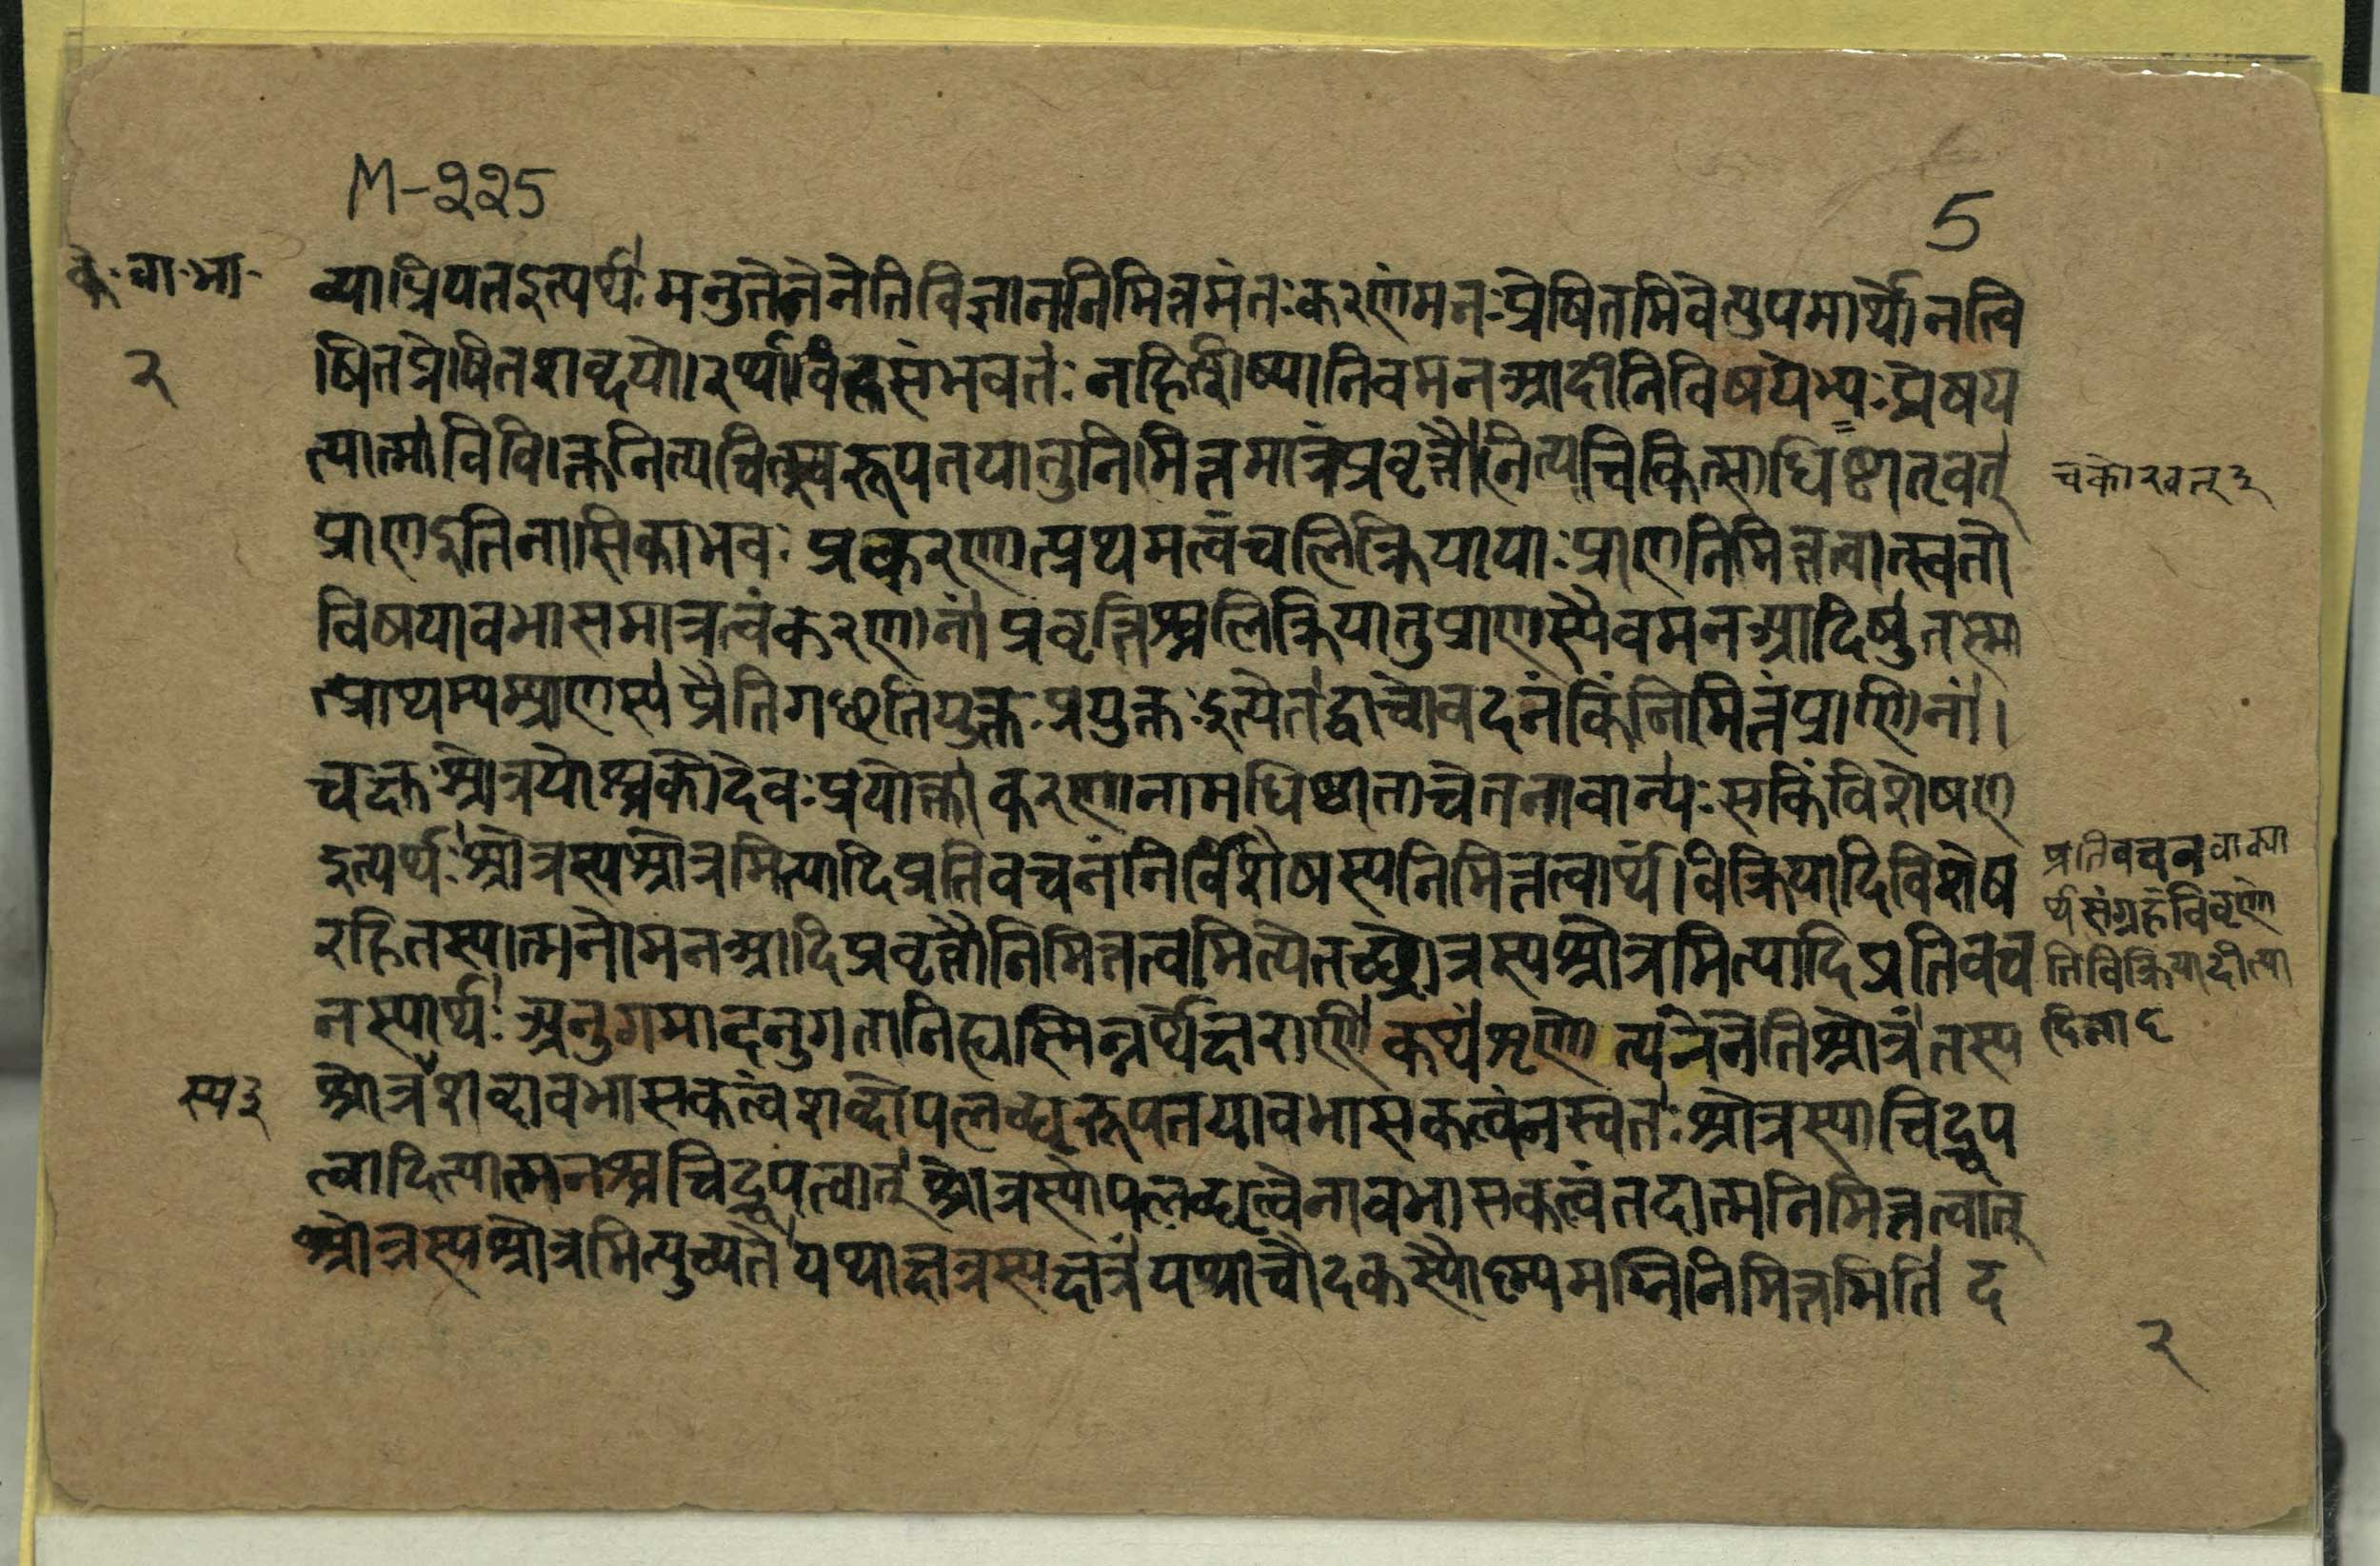 M-२२5
5
के·वा·भा·
व्याप्रियतइत्यर्थः मनुतेनेनेतिविज्ञाननिमित्तमंतःकरणंमनःप्रेषितमिवेत्युपमार्थोनत्वि
२
षितप्रेषितशब्दयोरर्थाविहसंभवतः नहिशिष्यानिवमनआदीनिविषयेभ्यःप्रेषय
त्यात्माविविक्तनित्यचित्स्वरूपतयातुनिमित्तमात्रंप्रवृत्तौनित्यचिकित्साधिष्ठातृवत्
चकोरवत् ३
प्राणइतिनासिकाभवः प्रकरणात्प्रथमत्वंचलिक्रियायाःप्राणनिमित्तत्वात्स्वतो
विषयावभासमात्रत्वंकरणानां प्रवृत्तिश्चलिक्रियातुप्राणस्यैवमनआदिषु तस्मा
त्प्राथम्यम्प्राणस्य प्रैतिगछतियुक्तः प्रयुक्तःइत्येतद्वाचोवदनंकिंनिमित्तंप्राणिनां।
चक्षुःश्रोत्रयोश्चकोदेवःप्रयोक्ता करणानामधिष्ठाताचेतनावान्यः सकिंविशेषण
इत्यर्थः श्रोत्रस्यश्रोत्रमित्यादिप्रतिवचनंनिर्विशेषस्यनिमित्तत्वार्थं।विक्रियादिविशेष
रहितस्यात्मनोमनआदिप्रवृत्तौनिमित्तत्वमित्येतच्छ्रोत्रस्यश्रोत्रमित्यादिप्रतिवच
नस्यार्थः अनुगमादनुगतानिह्यस्मिन्नर्थेक्षराणि कथंशृणोत्यनेनेतिश्रोत्रं तस्य
प्रतिवचनवाक्या
र्थसंग्रहंविवृणो
तिविक्रियादीत्या
दिना ८
स्य ३
श्रोत्रं शब्दावभासकत्वंशब्दोपलब्धृरूपतयावभासकत्वंनस्वतः श्रोत्रस्याचिद्रूप
त्वादित्यात्मनश्चचिद्रूपत्वात् श्रोत्रस्योपलब्धृत्वेनावभासकत्वंतदात्मनिमित्तत्वात्
श्रोत्रस्यश्रोत्रमित्युच्यते यथाक्षत्रस्यक्षत्रं यथाचोदकस्यौष्ण्यमग्निनिमित्तमिति द
२